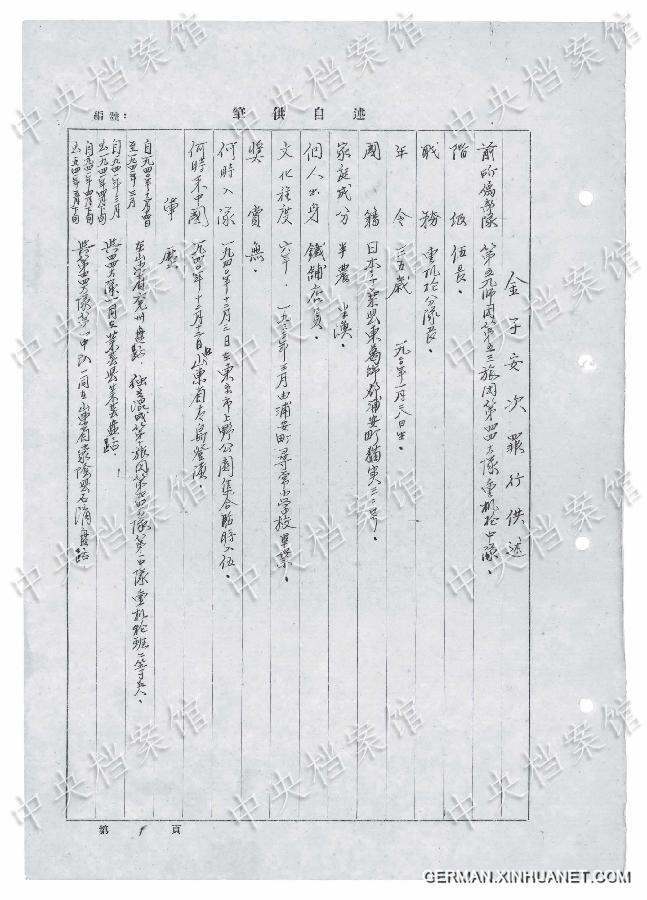 編號：
述自供筆
金子安次罪行供述
前所属部隊 第五九師団第五三旅団第四四大隊重机枪中隊。
階級 伍長。
职務 重机枪分隊長。
年令 三五歳 一九二〇年一月二八日生。
國籍 日本千葉県東葛飾郡浦安町猫実三二号。
家庭成分 半農半漁。
個人出身 鐵舗店員。
文化程度 六年．一九三二年三月由浦安町尋常小学校畢業。
奖賞 無。
何時入隊 一九四〇年十二月二日在東京市上野公園集合臨時入伍。
何時來中國 一九四〇年十二月十二日由山東省青島登陸
軍歷
自一九四〇年十二月四日至一九四一年三月 在山東省兗州盘踞．独立混成第十旅団第四四大隊第一中隊重机枪班二等兵。
自一九四一年三月至一九四一年四月下旬 與四四大隊一同在萊蕪县萊蕪盘踞。
自一九四一年四月下旬至一九四一年五月下旬 與第四四大隊第一中队一同在山東省蒙陰县
第 1 頁
中央档案馆
GERMAN.XINHUANET.COM